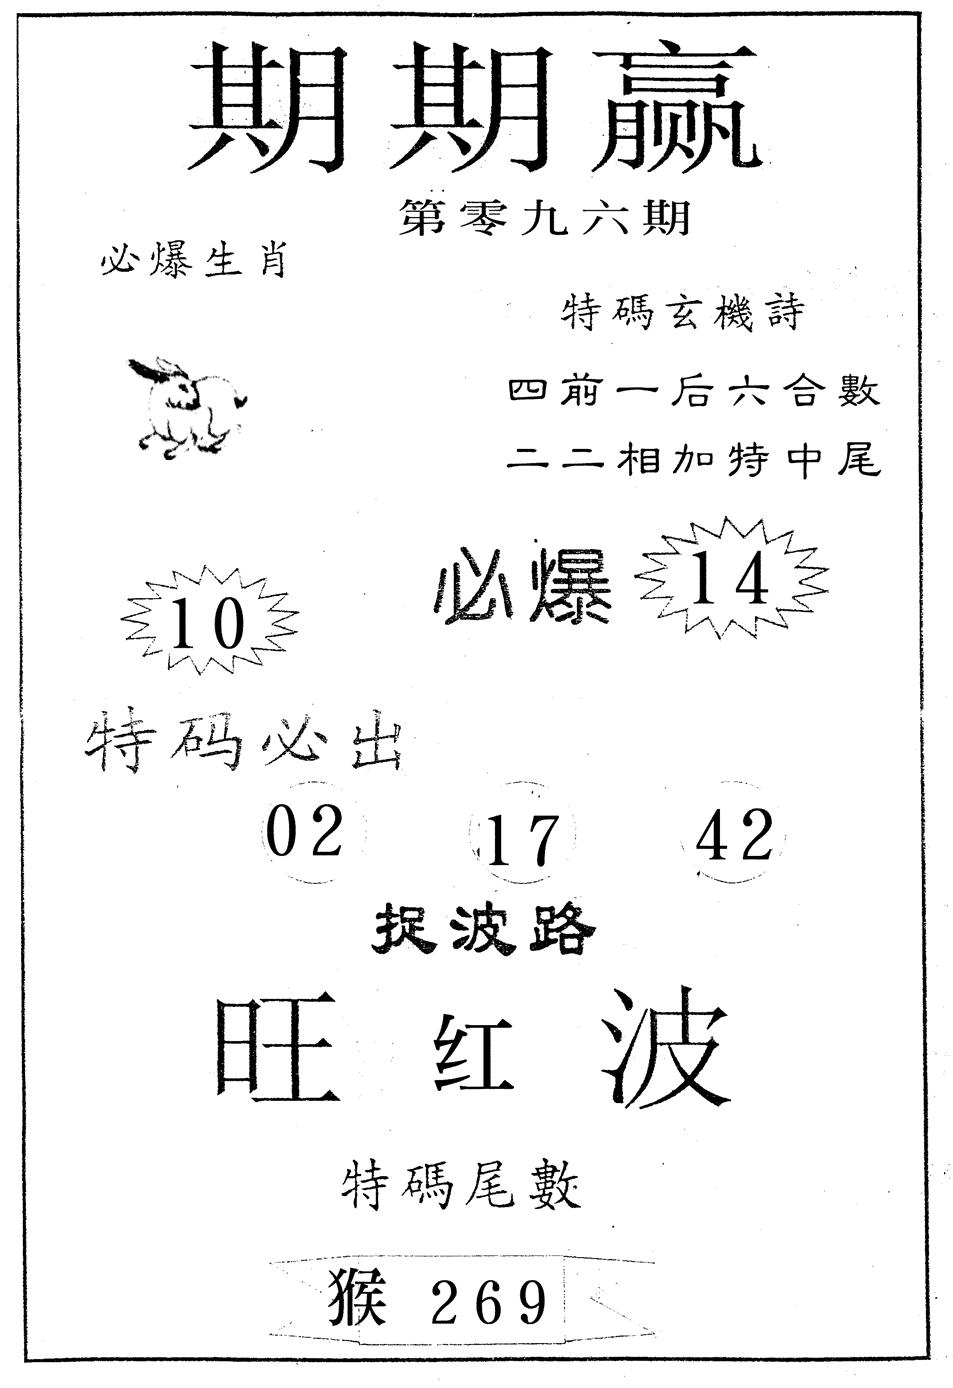 期期赢
第零九六期
必爆生肖
特碼玄機詩
四前一后六合數
二二相加特中尾
必爆 14
10
特码必出
02 17 42
捉波路
旺红波
特碼尾數
猴 269